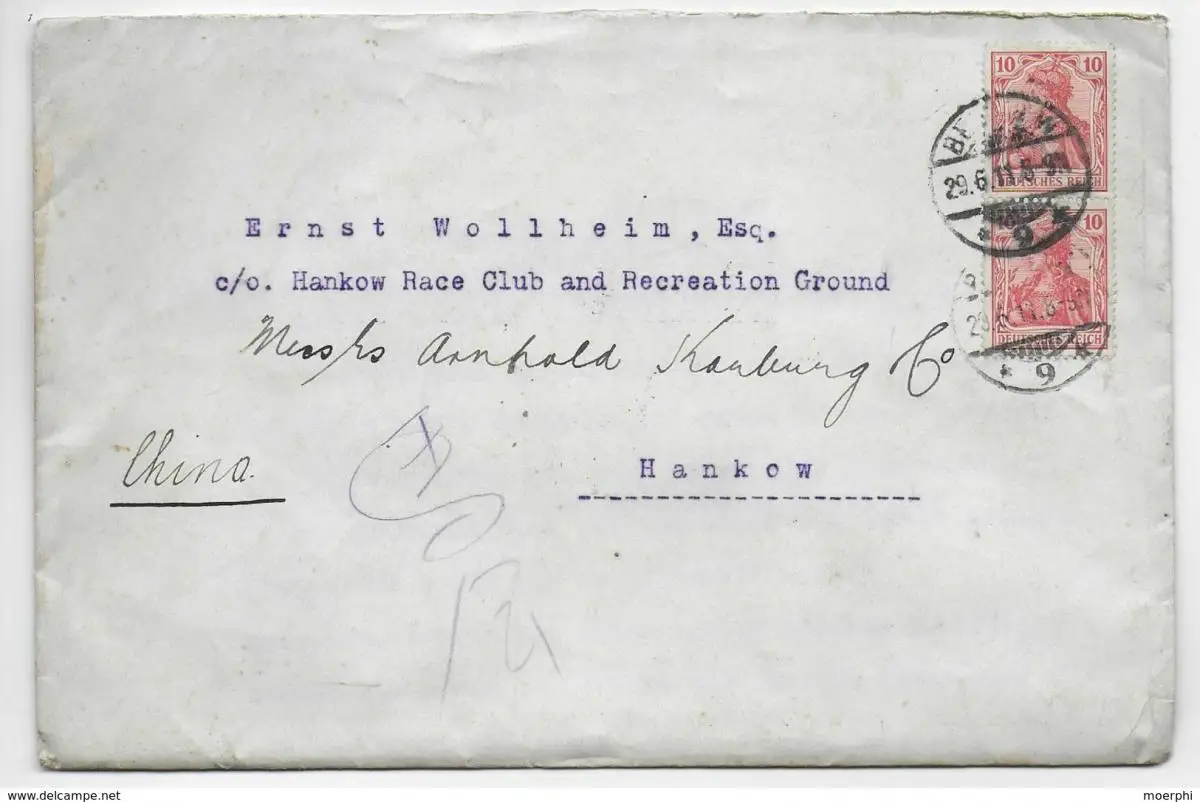 10 10
BERLIN W
29.6.11.8-9N
* 9 K
DEUTSCHES REICH
10
29.6.11.8-9N
DEUTSCHES REICH
* 9 K
Ernst Wollheim, Esq.
c/o. Hankow Race Club and Recreation Ground
Messrs Arnhold Karburg Co
China.
Hankow
delcampe.net
moerphi